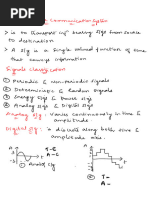 Communication System
> is to Transport inf bearing sigs from source
to destination
> A sig is a single valued function of time
that conveys information
Signals classification
① Periodic & Non-periodic signals
② Deterministic & Random signals
③ Energy sigs & Power sigs
④ Analog sigs & Digital sigs
Analog sig: varies continuously in time &
amplitude
Digital sig: is discrete along both time &
amplitude axis.
A
T - C
A - C
T
Analog sig
A
T
T -
A -